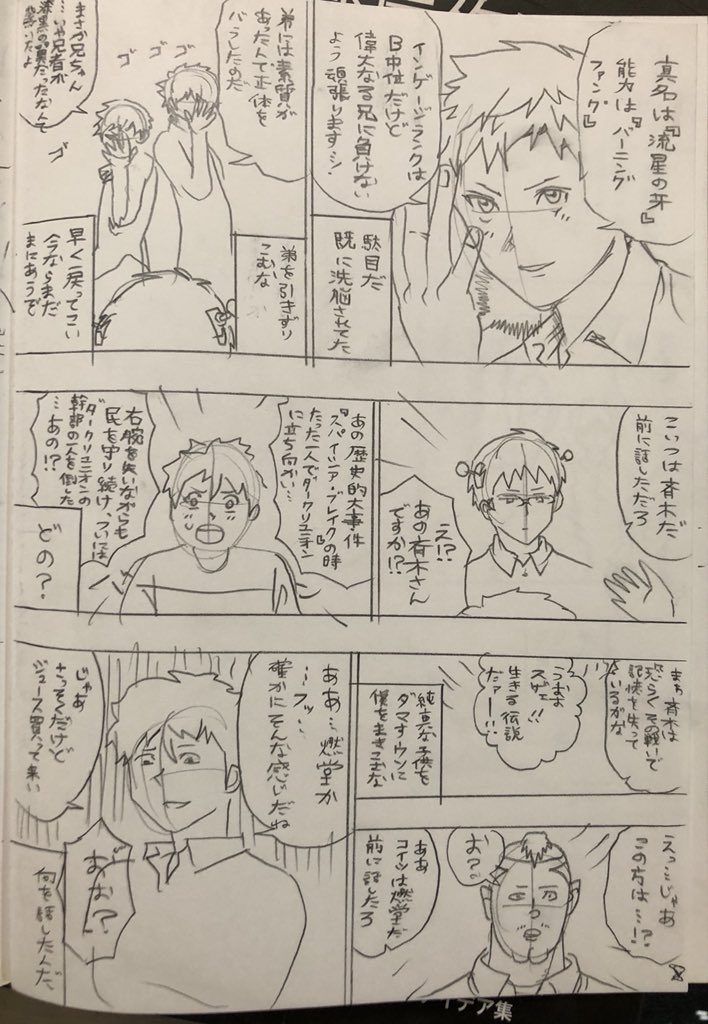 真名は『流星の牙』
能力は『バーニング
ファング』
インゲージランクは
B中位だけど
偉大なる兄に負けない
よう頑張りますシ!
駄目だ
既に洗脳されてた
弟には素質が
あったんで正体を
バラしたのだ
弟を引きずり
こむな
ゴゴゴ
ゴ
まさか兄ちゃん
…いや兄者が
漆黒の翼だったなんて
驚いたよ
早く戻ってこい
今ならまだ
まにあうぞ
こいつは斉木だ
前に話しただろ
え!?
あの斉木さん
ですか!?
あの歴史的大事件
『スパイシア・ブレイク』の時
たった一人でダークリユニオン
に立ち向かい…
右腕を失いながらも
民を守り続け、ついには
ダークリユニオンの
幹部の一人を倒した
…あの!?
どの?
まぁ斉木は
恐らくその戦いで
記憶を失って
いるがな
うおお
スゲェ!!
生きる伝説
だァー!!
純真な子供を
ダマすウソに
僕をまきこむな
ああ…燃堂か
…フッ…
確かにそんな感じだね
じゃあ
さっそくだけど
ジュース買って来い
えっ…じゃあ
この方は…!?
お?
ああ
コイツは燃堂だ
前に話したろ
おお?
何を話したんだ
8
イデア集